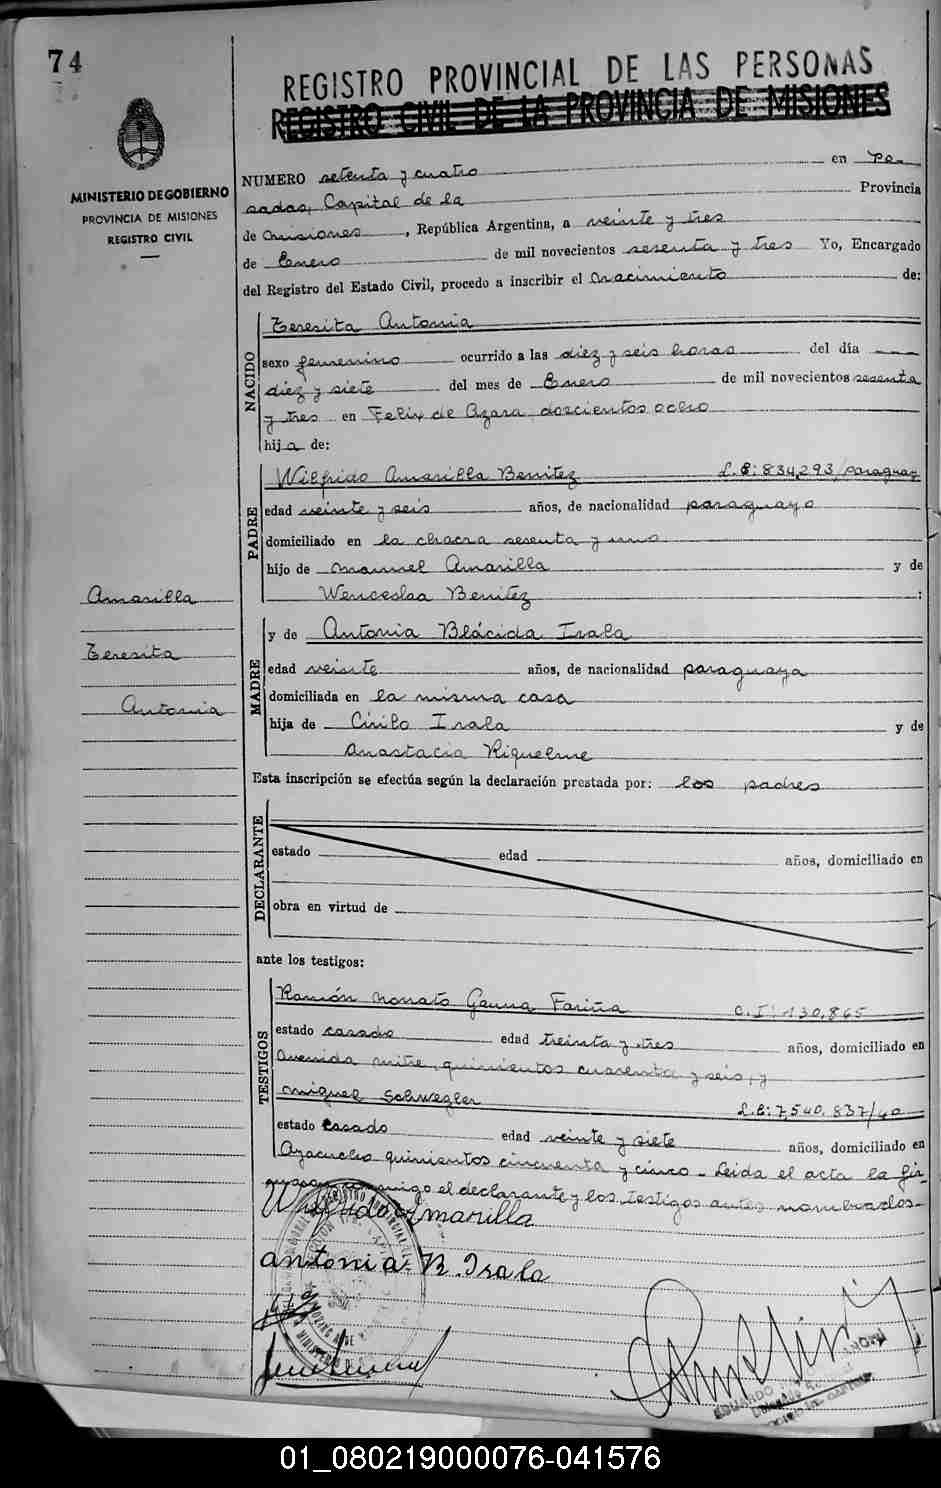 74
REGISTRO PROVINCIAL DE LAS PERSONAS
REGISTRO CIVIL DE LA PROVINCIA DE MISIONES
MINISTERIO DE GOBIERNO
PROVINCIA DE MISIONES
REGISTRO CIVIL
NUMERO setenta y cuatro en Po-
sadas, Capital de la Provincia
de Misiones, República Argentina, a veinte y tres
de Enero de mil novecientos sesenta y tres Yo, Encargado
del Registro del Estado Civil, procedo a inscribir el nacimiento de:
NACIDO
Teresita Antonia
sexo femenino ocurrido a las diez y seis horas del día
diez y siete del mes de Enero de mil novecientos sesenta
y tres en Felix de Azara doscientos ocho
hija de:
PADRE
Wilfrido Amarilla Benitez L.E: 834,293/paraguay
edad veinte y seis años, de nacionalidad paraguayo
domiciliado en la chacra sesenta y uno
hijo de Manuel Amarilla y de
Wenceslaa Benitez :
Amarilla
Teresita
Antonia
MADRE
y de Antonia Blácida Irala
edad veinte años, de nacionalidad paraguaya
domiciliada en la misma casa
hija de Cirilo Irala y de
Anastacia Riquelme
Esta inscripción se efectúa según la declaración prestada por: los padres
DECLARANTE
estado edad años, domiciliado en
obra en virtud de
ante los testigos:
TESTIGOS
Ramón Nonato Gauna Fariña C.I: 130,865
estado casado edad treinta y tres años, domiciliado en
Avenida mitre, quinientos cuarenta y seis, y
Miguel Schwegler L.E: 7,540,837/40
estado Casado edad veinte y siete años, domiciliado en
Ayacucho quinientos cincuenta y cinco - Leida el acta la fir-
conmigo el declarante y los testigos antes nombrados-
Wilfrido Amarilla
Antonia B. Irala
01_080219000076-041576